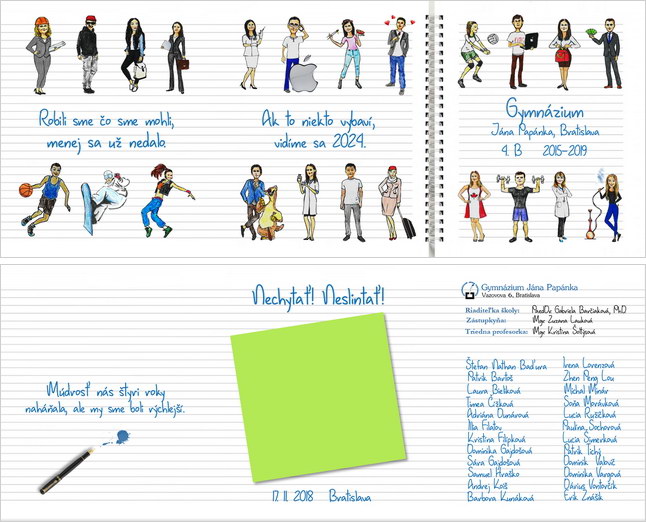 Robili sme čo sme mohli,
menej sa už nedalo.
Ak to niekto vybaví,
vidíme sa 2024.
Gymnázium
Jána Papánka, Bratislava
4. B 2015-2019
Múdrosť nás štyri roky
naháňala, ale my sme boli rýchlejší.
Nechytať! Neslintať!
17. 11. 2018 Bratislava
Gymnázium Jána Papánka
Vazovova 6, Bratislava
Riaditeľka školy: PaedDr. Gabriela
Zástupkyňa: Mgr. Zuzana
Triedna profesorka: Mgr. Kristína
Štefan Nathan Baďura
Patrik Bartoš
Laura Bieliková
Timea
Adriána Dunárová
Illia Filatov
Kristína Filipková
Dominika Gajdošová
Sára Gajdošová
Samuel Hraško
Andrej
Barbora Kunáková
Irena Lovenzová
Zhen Peng Lou
Michal Mlnár
Soňa Morávková
Lucia Ružičková
Paulína Sochorová
Lucia Šimerková
Patrik Tichý
Dominik
Dominika Vargová
Dárius
Erik Znášik